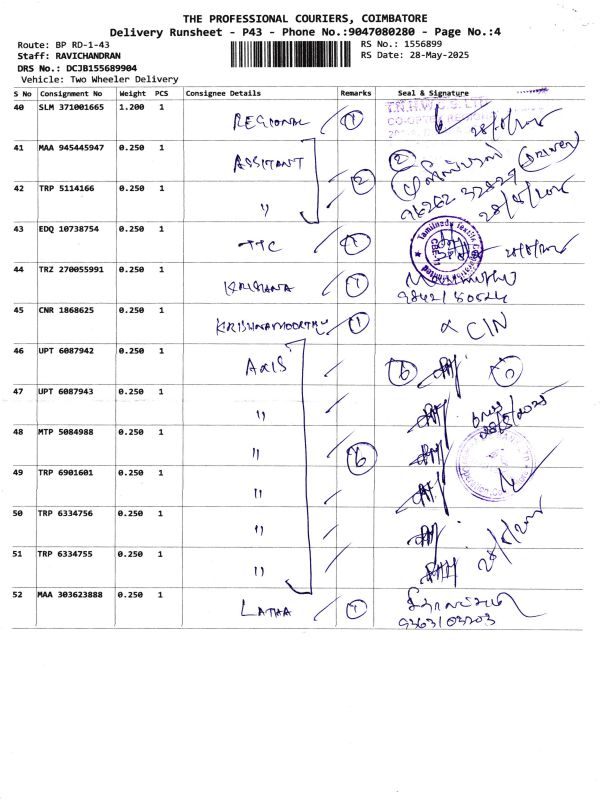 THE PROFESSIONAL COURIERS, COIMBATORE
Delivery Runsheet - P43 - Phone No.:9047080280 - Page No.:4
Route: BP RD-1-43 RS No.: 1556899
Staff: RAVICHANDRAN RS Date: 28-May-2025
DRS No.: DCJB155689904
Vehicle: Two Wheeler Delivery
S No Consignment No Weight PCS Consignee Details Remarks Seal & Signature
40 SLM 371001665 1.200 1 REGIONAL 1
41 MAA 945445947 0.250 1 ASSITANT 2 Driver
42 TRP 5114166 0.250 1 " 2
43 EDQ 10738754 0.250 1 TTC 1
44 TRZ 270055991 0.250 1 KRISHNA 1
45 CNR 1868625 0.250 1 KRISHNAMOORTHY 1 CIN
46 UPT 6087942 0.250 1 AXIS 6
47 UPT 6087943 0.250 1 "
48 MTP 5084988 0.250 1 " 6
49 TRP 6901601 0.250 1 "
50 TRP 6334756 0.250 1 "
51 TRP 6334755 0.250 1 "
52 MAA 303623888 0.250 1 LATHA 1
9363103203